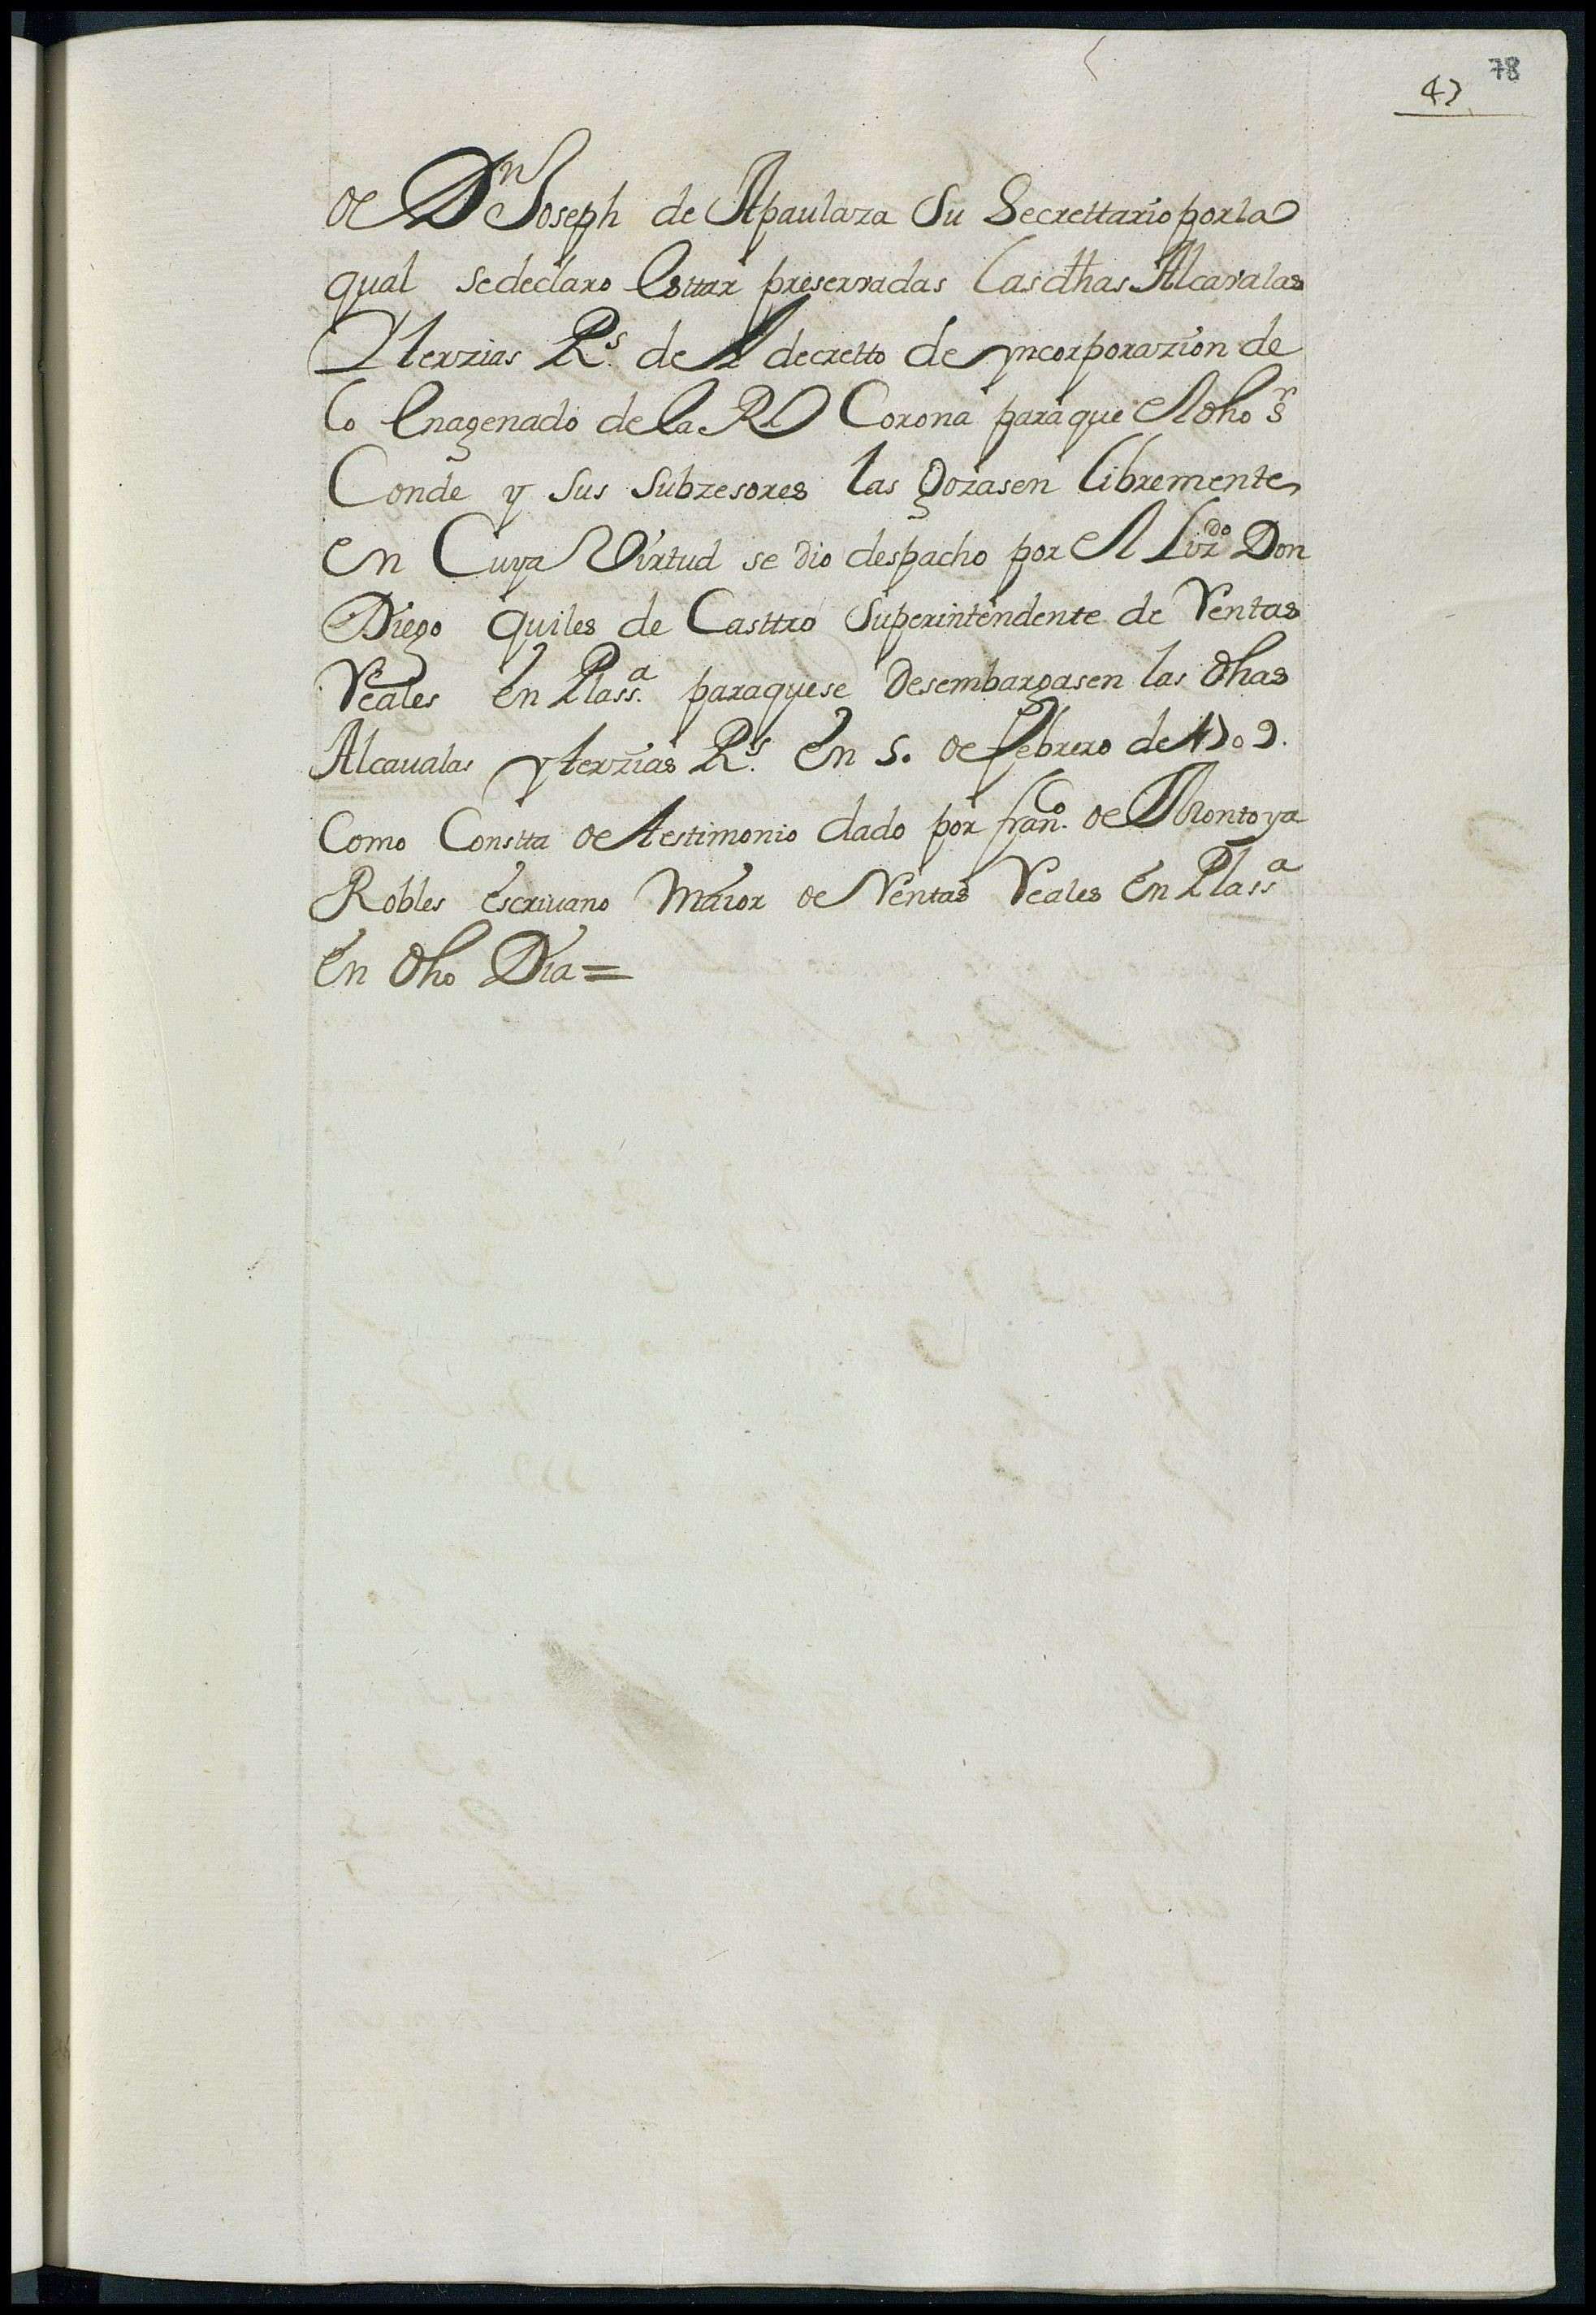 78
47
de Dn Joseph de Apaulaza Su Secrettario por la
qual se declaro Esttar preservadas las dhas Alcavalas
Y terzias Rs. de el decretto de yncorporazion de
lo Enagenado de la Rl Corona para que el dho Sr
Conde y sus subzesores las gozasen libremente
en Cuya Virtud se dio despacho por el Lizdo Don
Diego Quiles de Casttro Superintendente de Ventas
Reales en Plassa. para que se desembargasen las dhas
Alcaualas y terzias Rs. En 5. de Febrero de 1709.
Como Constta de testimonio dado por franco. de Montoya
Robles escriuano Maior de Ventas Reales en Plassa
en dho Dia=